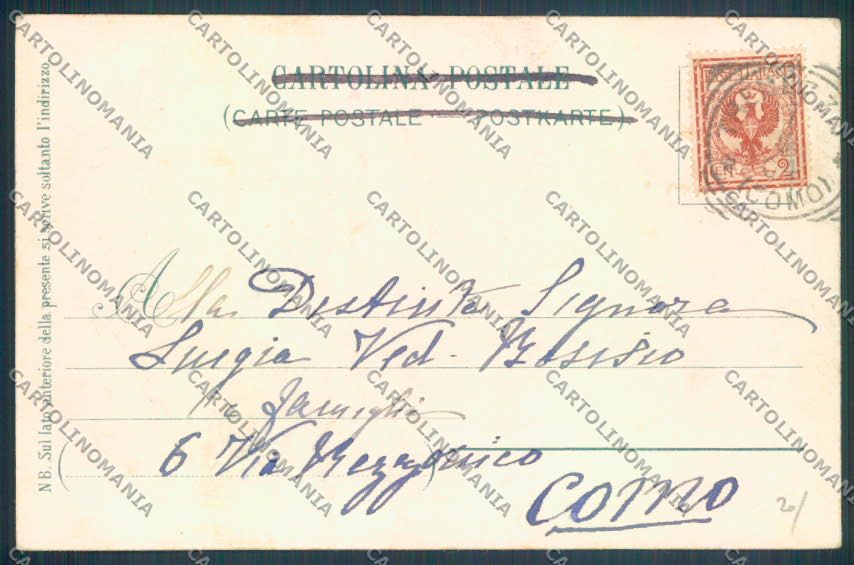 CARTOLINA POSTALE
(CARTE POSTALE POSTKARTE)
POSTE ITALIANE
CENT. 2
(COMO)
Alla Distinta Signora
Luigia Ved. Bosisio
e famiglia
6 Via
COMO
20/
NB. Sul lato anteriore della presente si scrive soltanto l'indirizzo
CARTOLINOMANIA